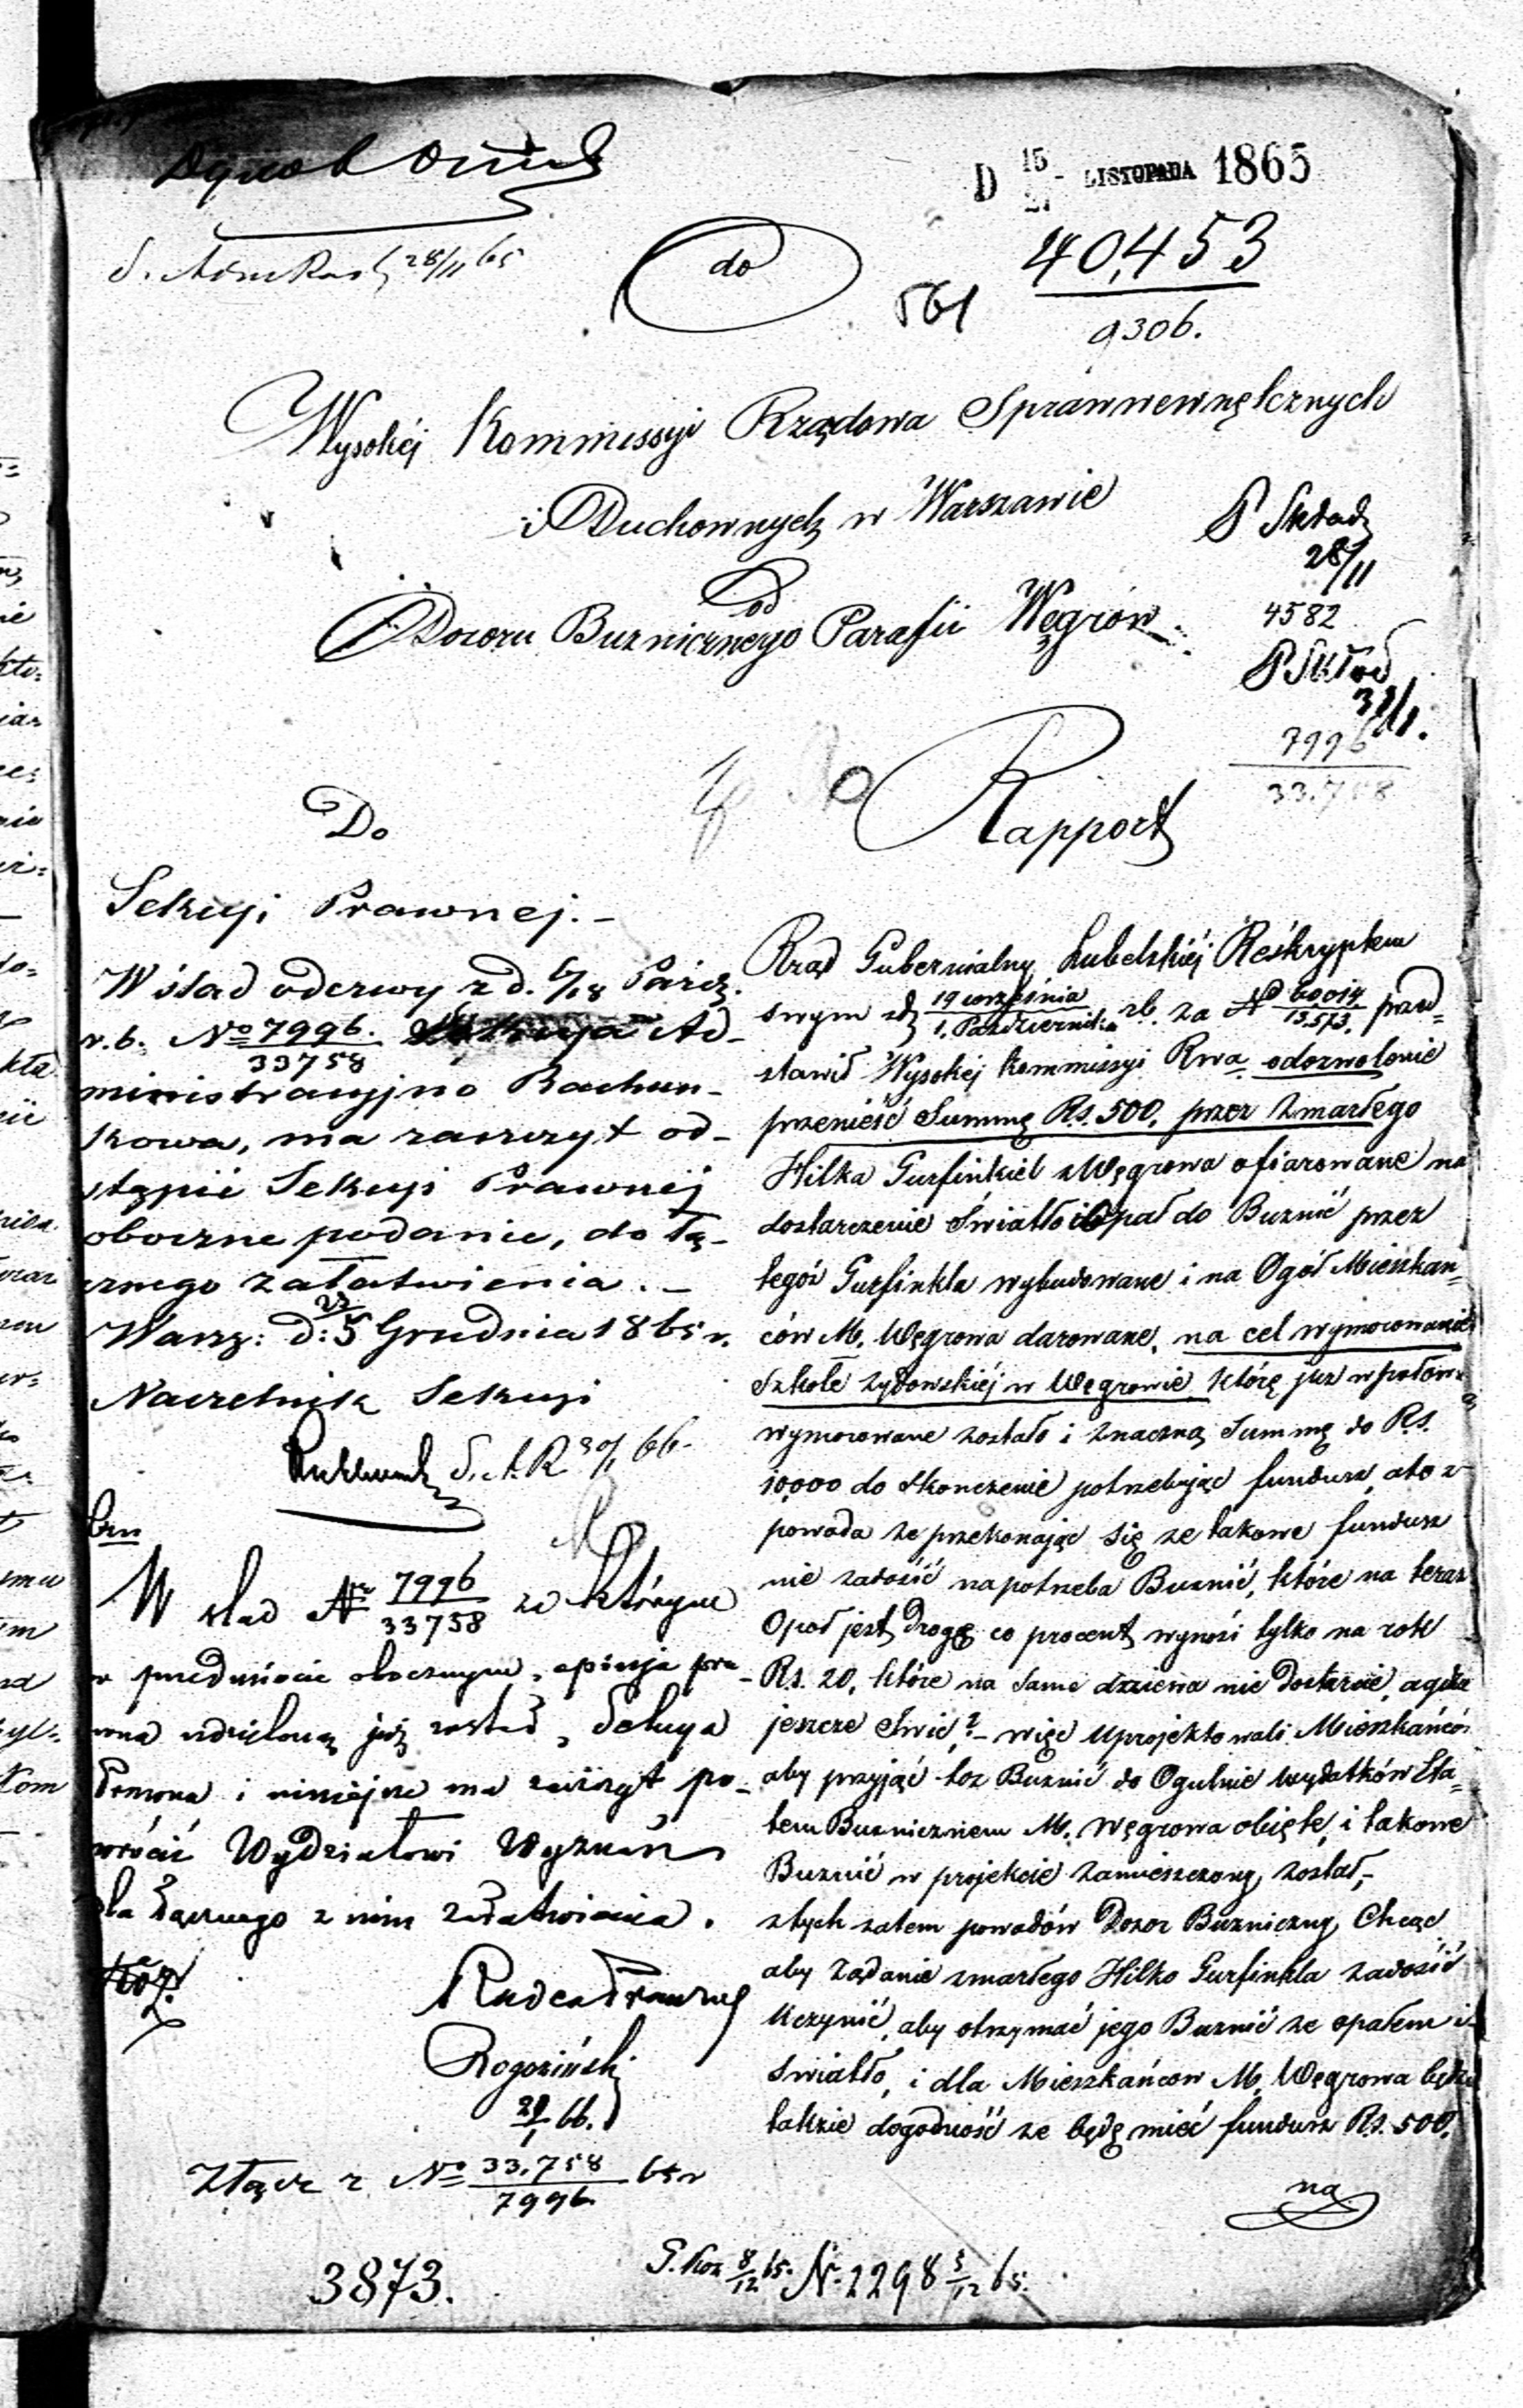 D 15/27 LISTOPADA 1865
28/11 65
do
561
40,453
9306.
Wysokiéj Kommissyi Rządowa Sprawwewnętcznych
i Duchownych w Warszawie
P Skład
28/11
od
Dozoru Buznicznego Parafii Węgrów
4582
P Skład
7996
33.758
Rapport
Do
Sekcyi Prawnej. –
W ślad odezwy z d. 6/18 Paźdz.
r. b. No 7996/33758 Sekcyja Ad-
ministracyjno Rachun-
kowa, ma zaszczyt od-
stąpić Sekcyi Prawnéj
oboczne podanie, do łą-
cznego załatwienia. –
Warsz: d: 23/5 Grudnia 1865 r.
Naczelnik Sekcyi
30/1 66.
W ślad Nr 7996/33758 za którym
w przedmiocie obocznym, opinja pra-
wna udzieloną już została, Sekcya
Prawna i niniejsze ma zaszczyt po-
wrócić Wydziałowi Wyznań
dla łącznego z nim załatwienia.
Radca Prawny
Rogoziński
29/1 66.
Złącz z No 33.758/7996 65 r
3873.
Rząd Gubernialny Lubelskiéj Reśkryptem
swym z d 19 września/1. Października r.b. za No 60014/13.573. przed=
stawił Wysokéj Kommissyi Rwa odozwolenie
przenieść Summę Rs. 500, przez Zmarłego
Hilka Gurfinkiel z Węgrowa ofiarowane na
dostarczenie Światło i Opał do Buznić przez
tegóż Gurfinkla wybudowane i na Ogół Mieszkan=
ców M. Węgrowa darowane, na cel wymorowanie
Szkołe Zydowskiéj w Węgrowie, którę juz w połow
wymorowane zostało i znaczną Summę do Rs.
10,000 do skonczenie potrzebując fundusz, ato z
powoda ze przekonając się ze takowe fundusz
nie zadosić napotrzeba Buznić, które na teraz
Opał jest drogę co procent wynosi tylko na rok
Rs. 20, które na same drzewa nie Dostarcie, agdzie
jeszcze Swić? – więc uprojektowali Mieszkańców
aby przyjąć toz Buznić do Ogulnie wydatków Eta=
tem Buzniczniem M. Węgrowa objęte, i takowe
Buznić w projekcie zamieszczony został, –
ztych zatem powadów Dozor Buzniczny Chcąc
aby Ządanie zmarłego Hilko Gurfinkla zadosić
Uczynić, aby otrzymać jego Buznić ze opałem i
swiatło, i dla Mieszkańcow M. Węgrowa będzie
takzie dogodność ze będę mieć fundusz Rs. 500.
na
No 2298 3/12 65.